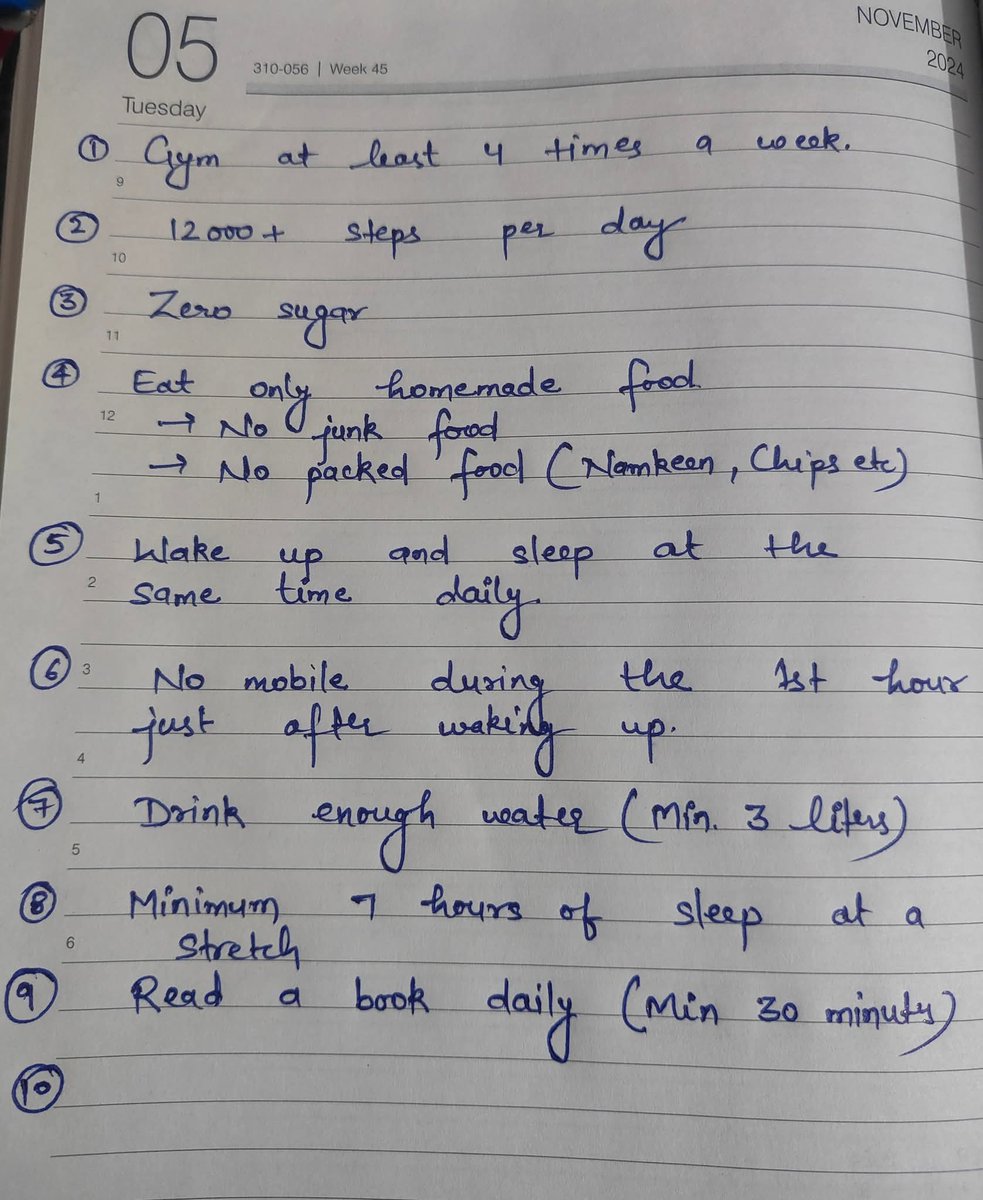 05
NOVEMBER
2024
310-056 | Week 45
Tuesday
① Gym at least 4 times a week.
9
② 12000+ steps per day
10
③ Zero sugar
11
④ Eat only homemade food
12 → No junk food
→ No packed food (Namkeen, Chips etc)
1
⑤ Wake up and sleep at the
2 same time daily.
⑥ 3 No mobile during the 1st hour
just after waking up.
4
⑦ Drink enough water (Min. 3 liters)
5
⑧ Minimum 7 hours of sleep at a
6 stretch
⑨ Read a book daily (Min 30 minuts)
⑩